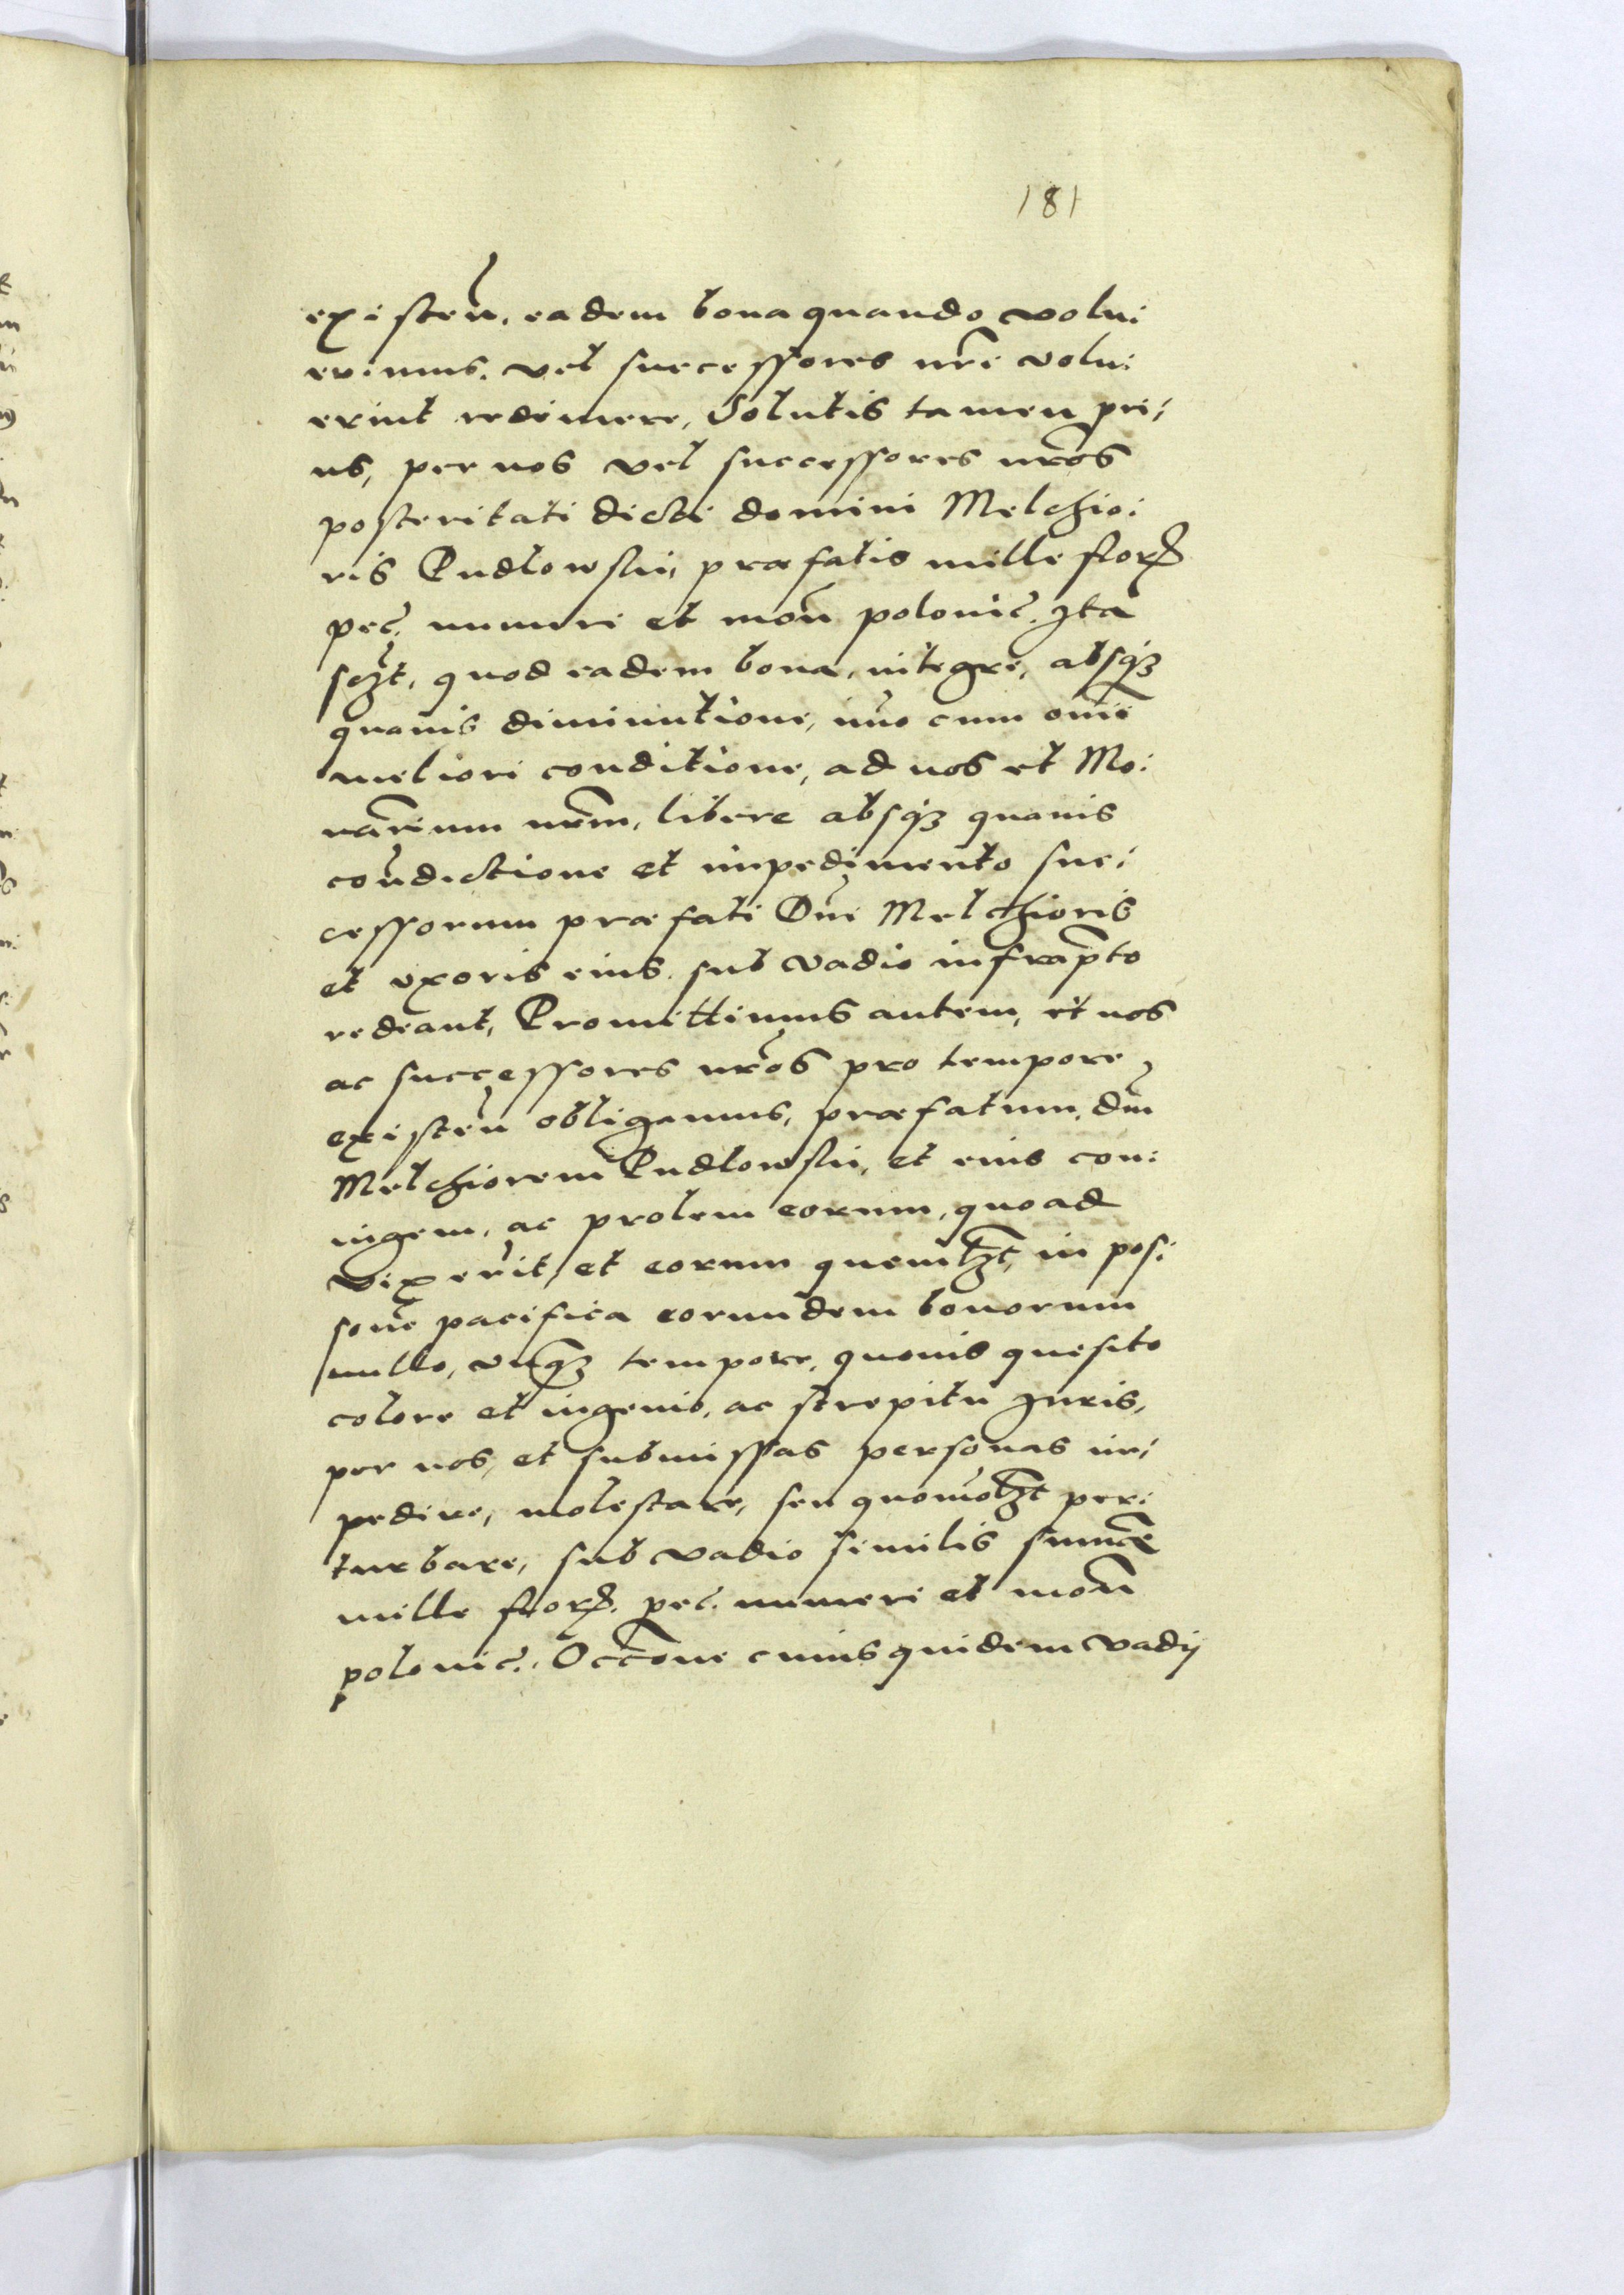 181
existen̄. eadem bona quando volui
erimus. vel successores nr̄i volui
erint redimere, Solutis tamen pri:
us, per nos vel successores nr̄os
posteritati dicti domini Melchio:
ris Pudlowskii, præfatis mille floꝝ
pec̄. numeri et mon̄ polonic̄. Ita
scꝫt, quod eadem bona, integre, absqꝫ
quauis diminutione, imo cum omī
meliori conditione, ad nos et Mo:
nāsrium nr̄m, libere absqꝫ quauis
con̄dictione et impedimento suc:
cessorum præfati Dn̄i Melchioris
et vxoris eius. sub vadio infrap̄to
redeant, Promittimus autem, et nos
ac successores nr̄os pro tempore
existen̄ obligamus, præfatum, dn̄m
Melchiorem Pudlowskii, et eius con:
iugem, ac prolem eorum, quoad
vixerit, et eorum quemlꝫt, in pos:
sone pacifica eorundem bonorum
nullo, vnqꝫ tempore, quouis quesito
colore et ingenio, ac strepitu Iuris,
per nos, et submissas personas im:
pedire, molestare, seu quomolꝫt per:
turbare, sub vadio similis sum̄æ
mille floꝝ. pec̄. numeri et mon̄
polonic̄. Occōne cuius quidem vadij